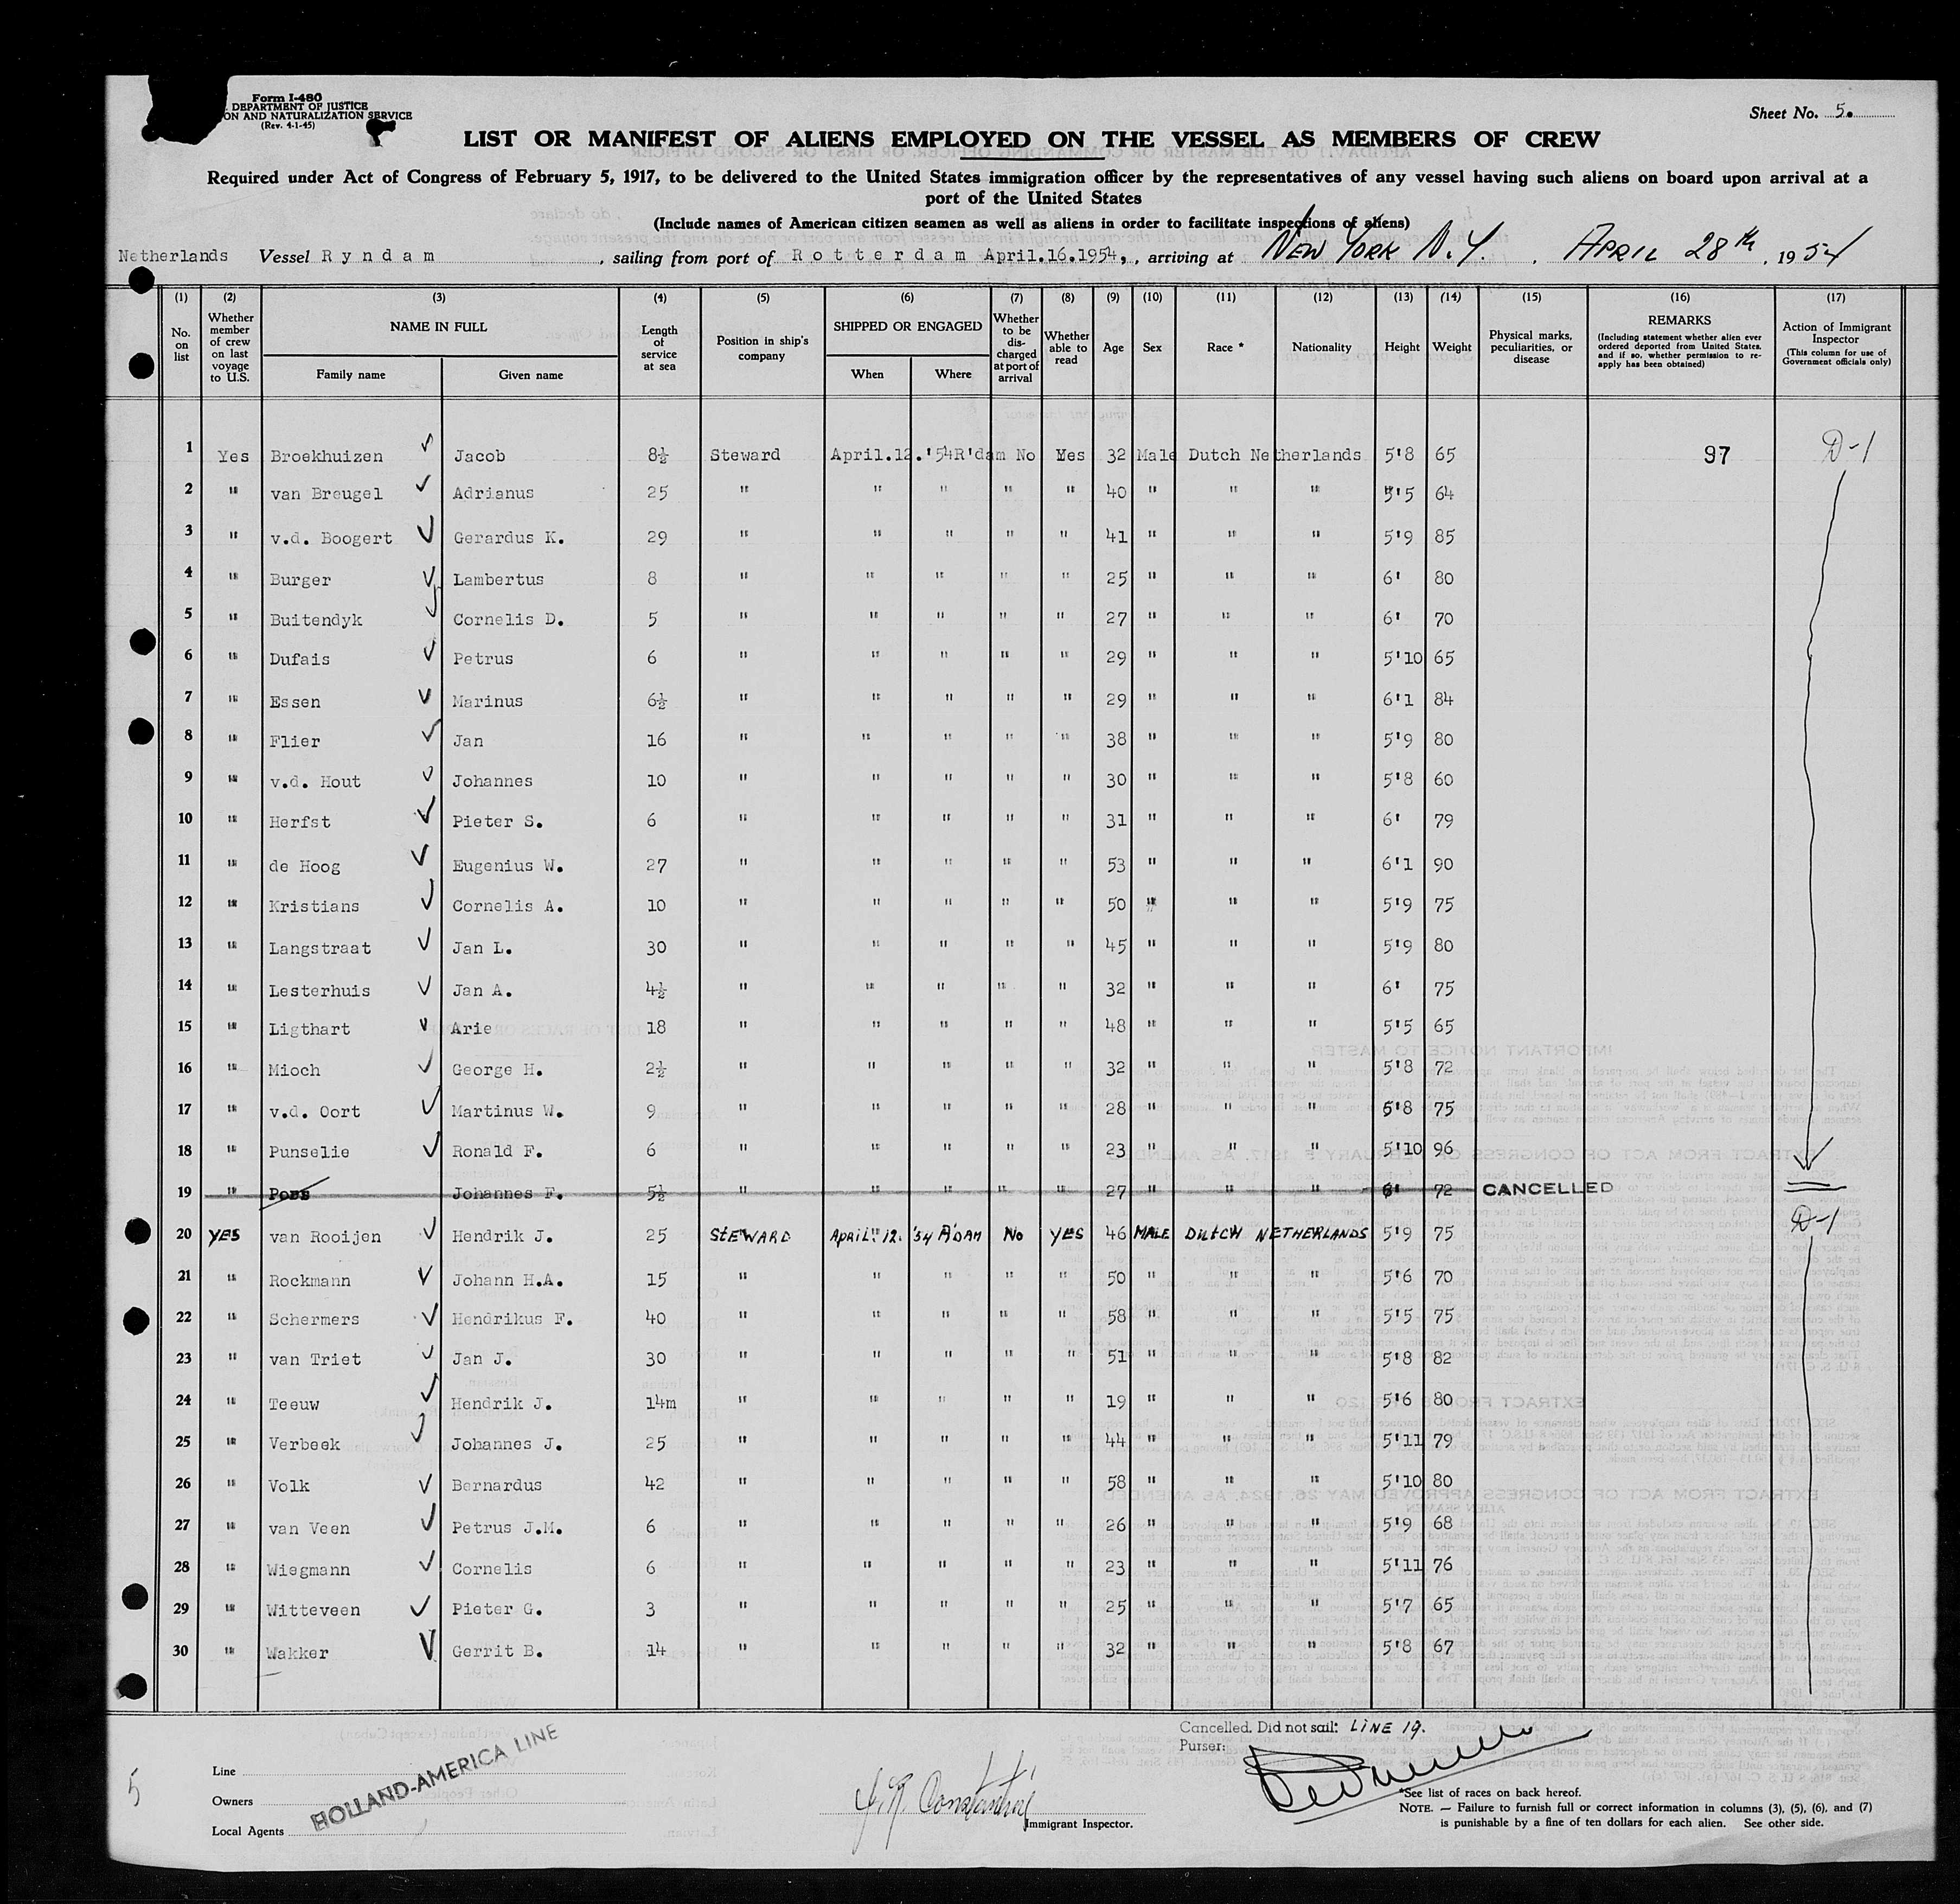 Form I-480
DEPARTMENT OF JUSTICE
ON AND NATURALIZATION SERVICE
(Rev. 4-1-45)
Sheet No. 5.
LIST OR MANIFEST OF ALIENS EMPLOYED ON THE VESSEL AS MEMBERS OF CREW
Required under Act of Congress of February 5, 1917, to be delivered to the United States immigration officer by the representatives of any vessel having such aliens on board upon arrival at a
port of the United States
(Include names of American citizen seamen as well as aliens in order to facilitate inspections of aliens)
Netherlands Vessel Ryndam, sailing from port of Rotterdam April.16.1954, , arriving at NEW YORK N.Y. . APRIL 28th, 1954
(1) (2) (3) (4) (5) (6) (7) (8) (9) (10) (11) (12) (13) (14) (15) (16) (17)
No. on list
Whether member of crew on last voyage to U.S.
NAME IN FULL
Family name
Given name
Length of service at sea
Position in ship's company
SHIPPED OR ENGAGED
When
Where
Whether to be discharged at port of arrival
Whether able to read
Age
Sex
Race *
Nationality
Height
Weight
Physical marks, peculiarities, or disease
REMARKS
(Including statement whether alien ever ordered deported from United States, and if so, whether permission to re-apply has been obtained)
Action of Immigrant Inspector
(This column for use of Government officials only)
1 Yes Broekhuizen Jacob 8½ Steward April.12.'54 R'dam No Yes 32 Male Dutch Netherlands 5'8 65 97 D-1
2 " van Breugel Adrianus 25 " " " " " 40 " " " 5'5 64
3 " v.d. Boogert Gerardus K. 29 " " " " " 41 " " " 5'9 85
4 " Burger Lambertus 8 " " " " " 25 " " " 6' 80
5 " Buitendyk Cornelis D. 5 " " " " " 27 " " " 6' 70
6 " Dufais Petrus 6 " " " " " 29 " " " 5'10 65
7 " Essen Marinus 6½ " " " " " 29 " " " 6'1 84
8 " Flier Jan 16 " " " " " 38 " " " 5'9 80
9 " v.d. Hout Johannes 10 " " " " " 30 " " " 5'8 60
10 " Herfst Pieter S. 6 " " " " " 31 " " " 6' 79
11 " de Hoog Eugenius W. 27 " " " " " 53 " " " 6'1 90
12 " Kristians Cornelis A. 10 " " " " " 50 " " " 5'9 75
13 " Langstraat Jan L. 30 " " " " " 45 " " " 5'9 80
14 " Lesterhuis Jan A. 4½ " " " " " 32 " " " 6' 75
15 " Ligthart Arie 18 " " " " " 48 " " " 5'5 65
16 " Mioch George H. 2½ " " " " " 32 " " " 5'8 72
17 " v.d. Oort Martinus W. 9 " " " " " 28 " " " 5'8 75
18 " Punselie Ronald F. 6 " " " " " 23 " " " 5'10 96
19 " Pons Johannes F. 5½ " " " " " 27 " " " 6' 72 CANCELLED
20 YES van Rooijen Hendrik J. 25 STEWARD APRIL 12. '54 R'DAM No YES 46 MALE DUTCH NETHERLANDS 5'9 75 D-1
21 " Rockmann Johann H.A. 15 " " " " " 50 " " " 5'6 70
22 " Schermers Hendrikus F. 40 " " " " " 58 " " " 5'5 75
23 " van Triet Jan J. 30 " " " " " 51 " " " 5'8 82
24 " Teeuw Hendrik J. 14m " " " " " 19 " " " 5'6 80
25 " Verbeek Johannes J. 25 " " " " " 44 " " " 5'11 79
26 " Volk Bernardus 42 " " " " " 58 " " " 5'10 80
27 " van Veen Petrus J.M. 6 " " " " " 26 " " " 5'9 68
28 " Wiegmann Cornelis 6 " " " " " 23 " " " 5'11 76
29 " Witteveen Pieter G. 3 " " " " " 25 " " " 5'7 65
30 " Wakker Gerrit B. 14 " " " " " 32 " " " 5'8 67
Cancelled. Did not sail: LINE 19.
Purser:
5
Line
Owners
Local Agents
HOLLAND-AMERICA LINE
Immigrant Inspector.
*See list of races on back hereof.
NOTE. — Failure to furnish full or correct information in columns (3), (5), (6), and (7)
is punishable by a fine of ten dollars for each alien. See other side.